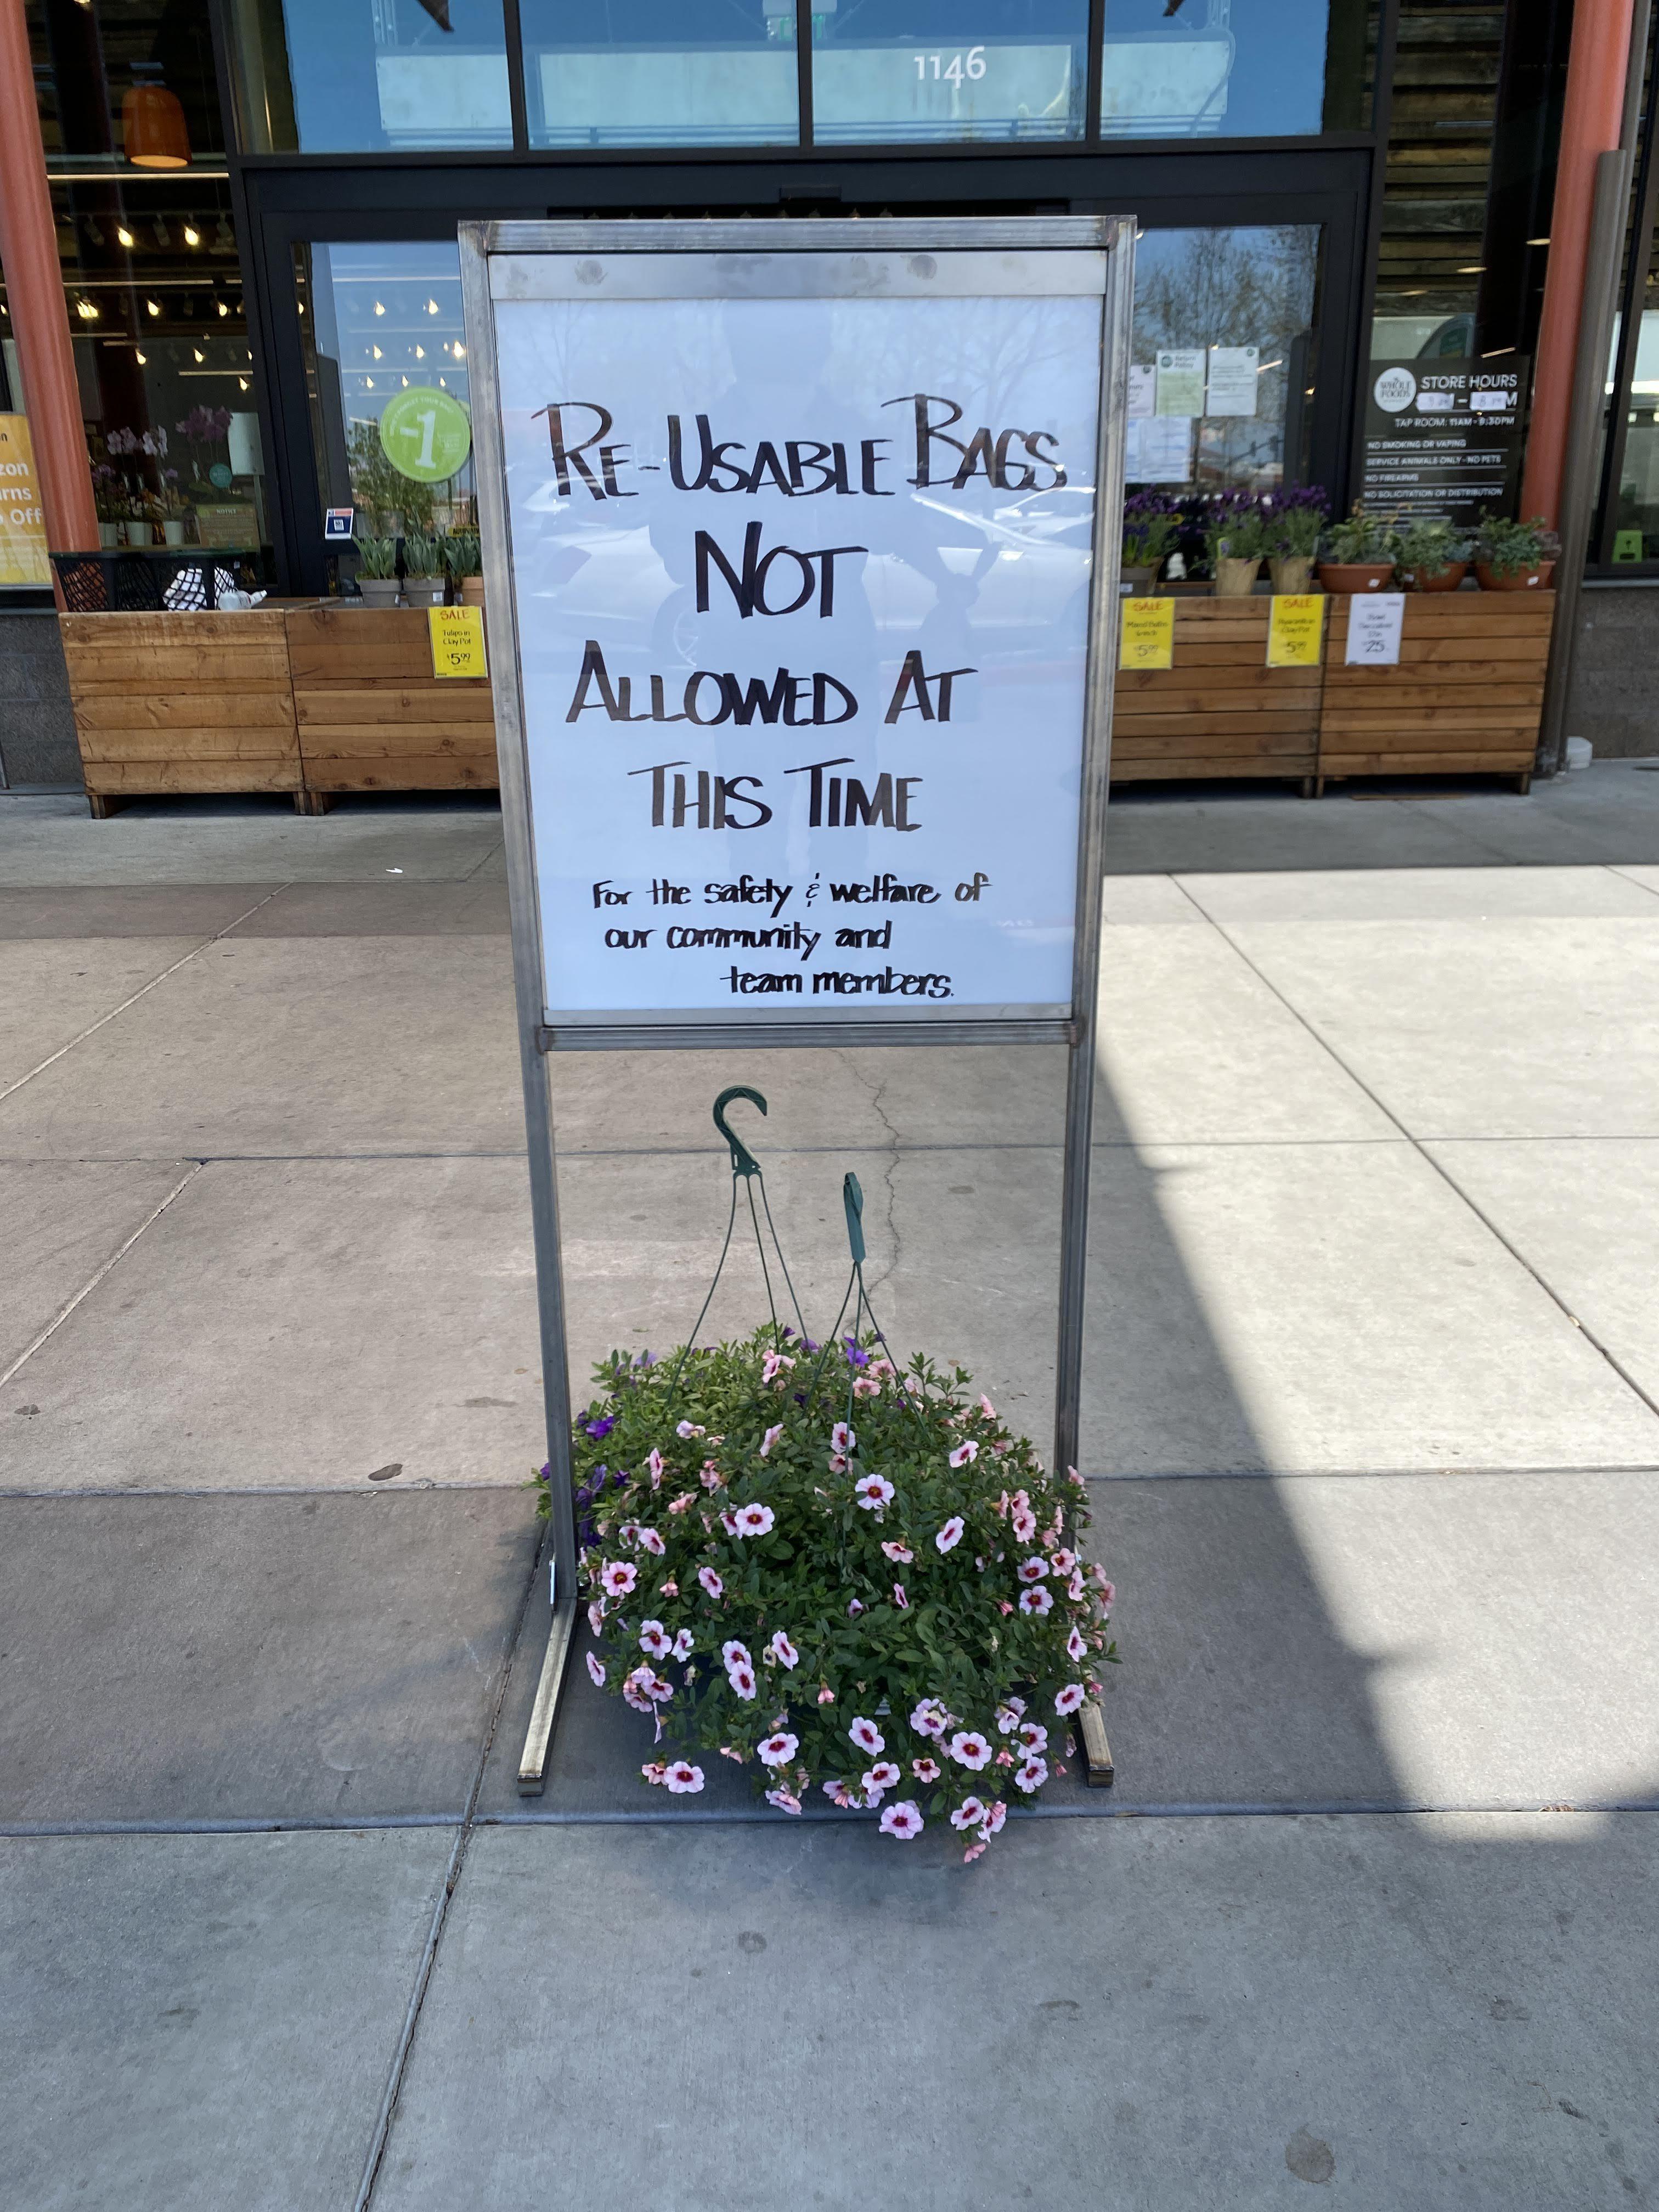 1146
RE-USABLE BAGS
NOT
ALLOWED AT
THIS TIME
For the safety & welfare of
our community and
team members.
-1
zon
rns
Off
WHOLE
FOODS
STORE HOURS
TAP ROOM: 11AM - 9:30PM
NO SMOKING OR VAPING
SERVICE ANIMALS ONLY - NO PETS
NO FIREARMS
NO SOLICITATION OR DISTRIBUTION
SALE
Tulips in
Clay Pot
$5.99
SALE
$5.99
SALE
Clay Pot
$5.99
25